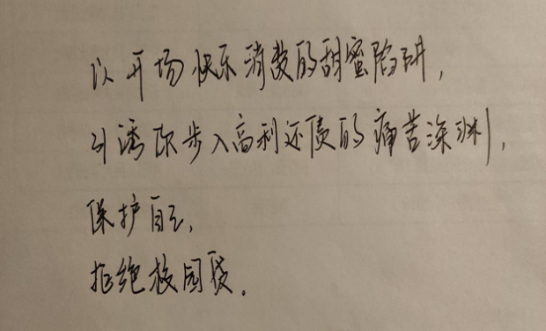 以开场快乐消费的甜蜜陷阱，
引诱你步入高利还债的痛苦深渊，
保护自己，
拒绝校园贷。